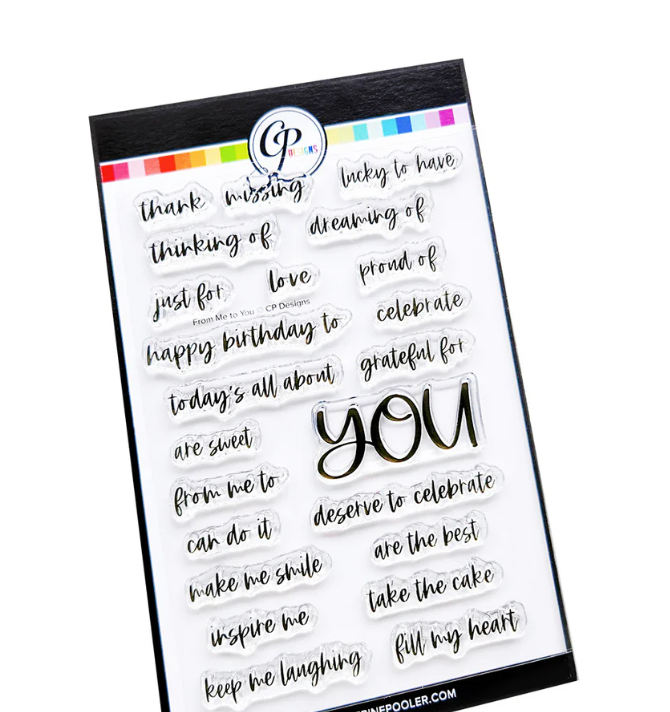 CP
DESIGNS
thank
missing
lucky to have
thinking of
dreaming of
just for
love
proud of
From Me to You © CP Designs
celebrate
happy birthday to
grateful for
today's all about
YOU
are sweet
from me to
deserve to celebrate
can do it
are the best
make me smile
take the cake
inspire me
fill my heart
keep me laughing
INEPOOLER.COM